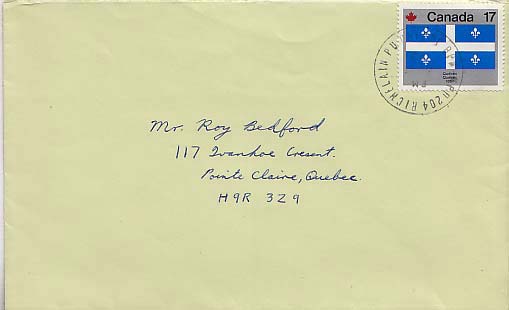 Canada 17
Québec
Quebec
RICHELAIN
Mr. Roy Bedford
117 Ivanhoe Cresent.
Pointe Claire, Quebec.
H9R 3Z9